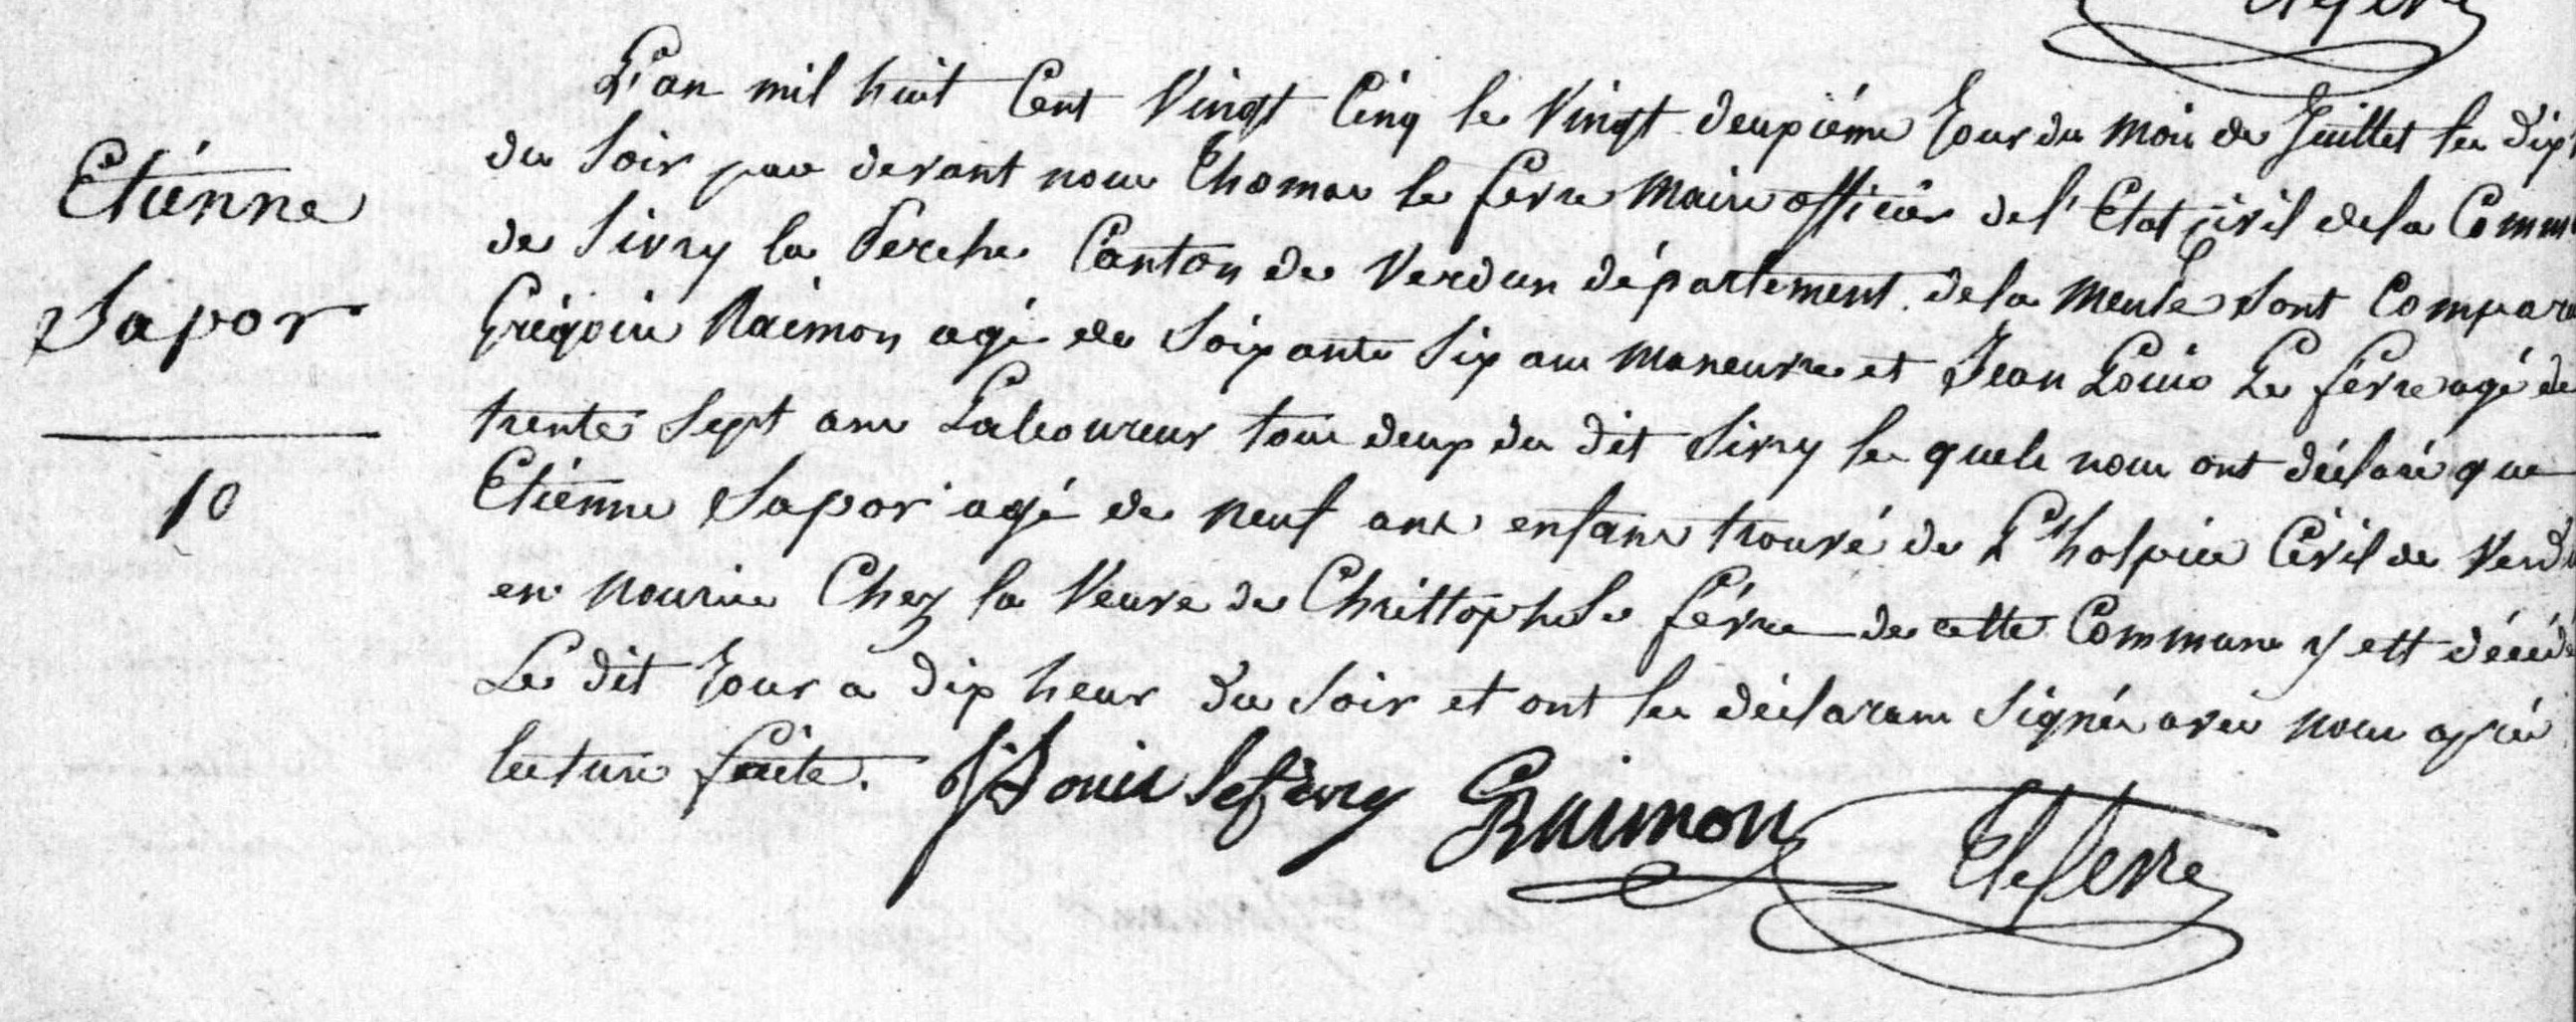 Etiénne
Sapor
10
L'an mil huit Cent Vingt Cinq le Vingt deuxiéme Jour du mois de Juillet les dix
du Soir par devant nous Thomas le fevre Maire officier de l'Etat Civil de la Comm
de Sivry la Perche Canton de Verdun département de la Meuse Sont Compar
Grégoire Raimon agé de Soixante Six ans maneuvre et Jean Louis Le fevre agé de
trente Sept ans Laboureur tous deux du dit Sivry les quels nous ont déclaré que
Etiénne Sapor agé de neuf ans enfans trouvé de L'hospice Civil de Verd
en nourice Chez la Veuve de Christophe Le févre de cette Commune y est décédé
Le dit Jour a dix heur du Soir et ont les déclarans Signés avec nous après
lecture faite. J L Louis lefevre G Raimon T lefevre